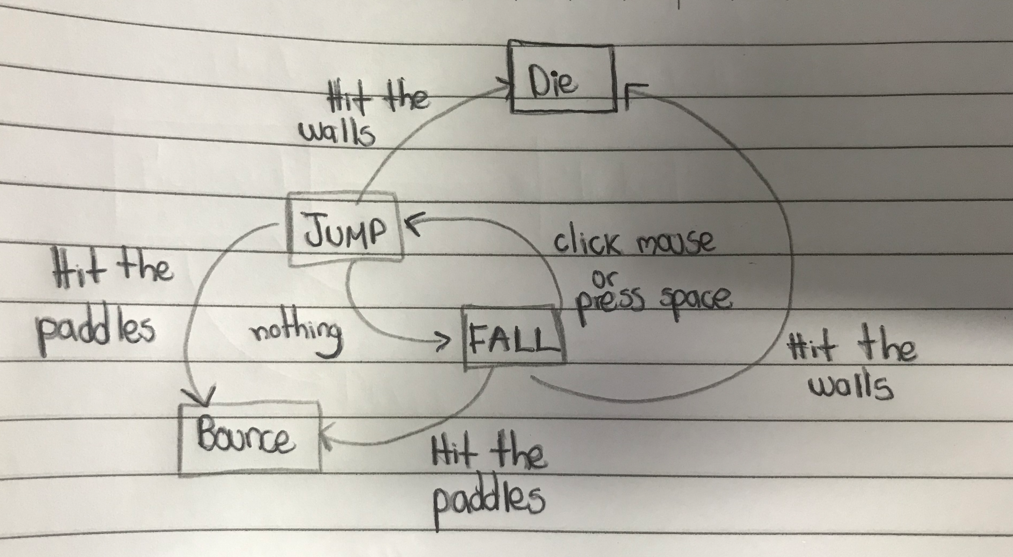 Die
Hit the
walls
JUMP
click mouse
or
press space
Hit the
paddles
nothing
FALL
Hit the
walls
Bounce
Hit the
paddles